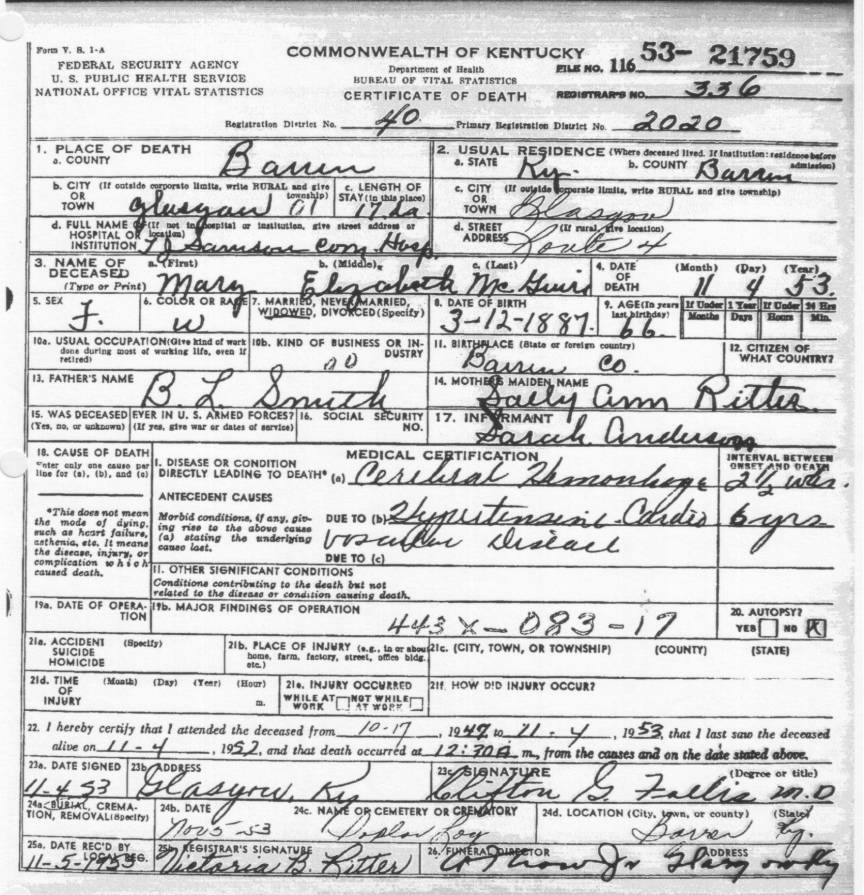 Form V. S. 1-A
FEDERAL SECURITY AGENCY
U. S. PUBLIC HEALTH SERVICE
NATIONAL OFFICE VITAL STATISTICS
COMMONWEALTH OF KENTUCKY
Department of Health
BUREAU OF VITAL STATISTICS
CERTIFICATE OF DEATH
FILE NO. 116 53- 21759
REGISTRAR'S NO. 336
Registration District No. 40 Primary Registration District No. 2020
1. PLACE OF DEATH
a. COUNTY Barren
2. USUAL RESIDENCE (Where deceased lived. If institution: residence before admission)
a. STATE Ky. b. COUNTY Barren
b. CITY (If outside corporate limits, write RURAL and give township)
OR
TOWN Glasgow 01
c. LENGTH OF
STAY (in this place)
17 da
c. CITY (If outside corporate limits, write RURAL and give township)
OR
TOWN Glasgow
d. FULL NAME OF (If not in hospital or institution, give street address or location)
HOSPITAL OR
INSTITUTION T J Samson Com. Hosp.
d. STREET (If rural, give location)
ADDRESS Route 4
3. NAME OF DECEASED
(Type or Print)
a. (First) b. (Middle) c. (Last)
Mary Elizabeth McGuire
4. DATE OF DEATH (Month) (Day) (Year)
11 4 53
5. SEX
F.
6. COLOR OR RACE
W
7. MARRIED, NEVER MARRIED,
WIDOWED, DIVORCED (Specify)
8. DATE OF BIRTH
3-12-1887
9. AGE (In years last birthday)
66
If Under 1 Year If Under 24 Hrs
Months Days Hours Min.
10a. USUAL OCCUPATION (Give kind of work
done during most of working life, even if
retired)
10b. KIND OF BUSINESS OR IN-
DUSTRY
11. BIRTHPLACE (State or foreign country)
Barren Co.
12. CITIZEN OF
WHAT COUNTRY?
13. FATHER'S NAME
B. L. Smith
14. MOTHERS MAIDEN NAME
Sally Ann Ritter.
15. WAS DECEASED EVER IN U. S. ARMED FORCES?
(Yes, no, or unknown) (If yes, give war or dates of service)
16. SOCIAL SECURITY
NO.
17. INFORMANT
Sarah Anderson
18. CAUSE OF DEATH
Enter only one cause per
line for (a), (b), and (c)
*This does not mean
the mode of dying,
such as heart failure,
asthenia, etc. It means
the disease, injury, or
complication which
caused death.
MEDICAL CERTIFICATION
INTERVAL BETWEEN
ONSET AND DEATH
I. DISEASE OR CONDITION
DIRECTLY LEADING TO DEATH* (a) Cerebral Hemorrhage 2½ wks.
ANTECEDENT CAUSES
Morbid conditions, if any, giv-
ing rise to the above cause
(a) stating the underlying
cause last.
DUE TO (b) Hypertensive Cardio 6 yrs
vascular Disease
DUE TO (c)
II. OTHER SIGNIFICANT CONDITIONS
Conditions contributing to the death but not
related to the disease or condition causing death.
19a. DATE OF OPERA-
TION
19b. MAJOR FINDINGS OF OPERATION
443X - 083 - 17
20. AUTOPSY?
YES NO X
21a. ACCIDENT (Specify)
SUICIDE
HOMICIDE
21b. PLACE OF INJURY (e.g., in or about
home, farm, factory, street, office bldg.
etc.)
21c. (CITY, TOWN, OR TOWNSHIP) (COUNTY) (STATE)
21d. TIME (Month) (Day) (Year) (Hour)
OF
INJURY m.
21e. INJURY OCCURRED
WHILE AT WORK NOT WHILE AT WORK
21f. HOW DID INJURY OCCUR?
22. I hereby certify that I attended the deceased from 10-17, 1947 to 11-4, 1953, that I last saw the deceased
alive on 11-4, 1953, and that death occurred at 12:30A m., from the causes and on the date stated above.
23a. DATE SIGNED
11-4-53
23b. ADDRESS
Glasgow, Ky
23c. SIGNATURE (Degree or title)
Clifton G. Follis M.D
24a. BURIAL, CREMA-
TION, REMOVAL (Specify)
24b. DATE
Nov 5-53
24c. NAME OR CEMETERY OR CREMATORY
Poplar Log
24d. LOCATION (City, town, or county) (State)
Barren Ky.
25a. DATE REC'D BY
LOCAL REG.
11-5-1953
25b. REGISTRAR'S SIGNATURE
Victoria B. Ritter
26. FUNERAL DIRECTOR ADDRESS
Jr Glasgow Ky